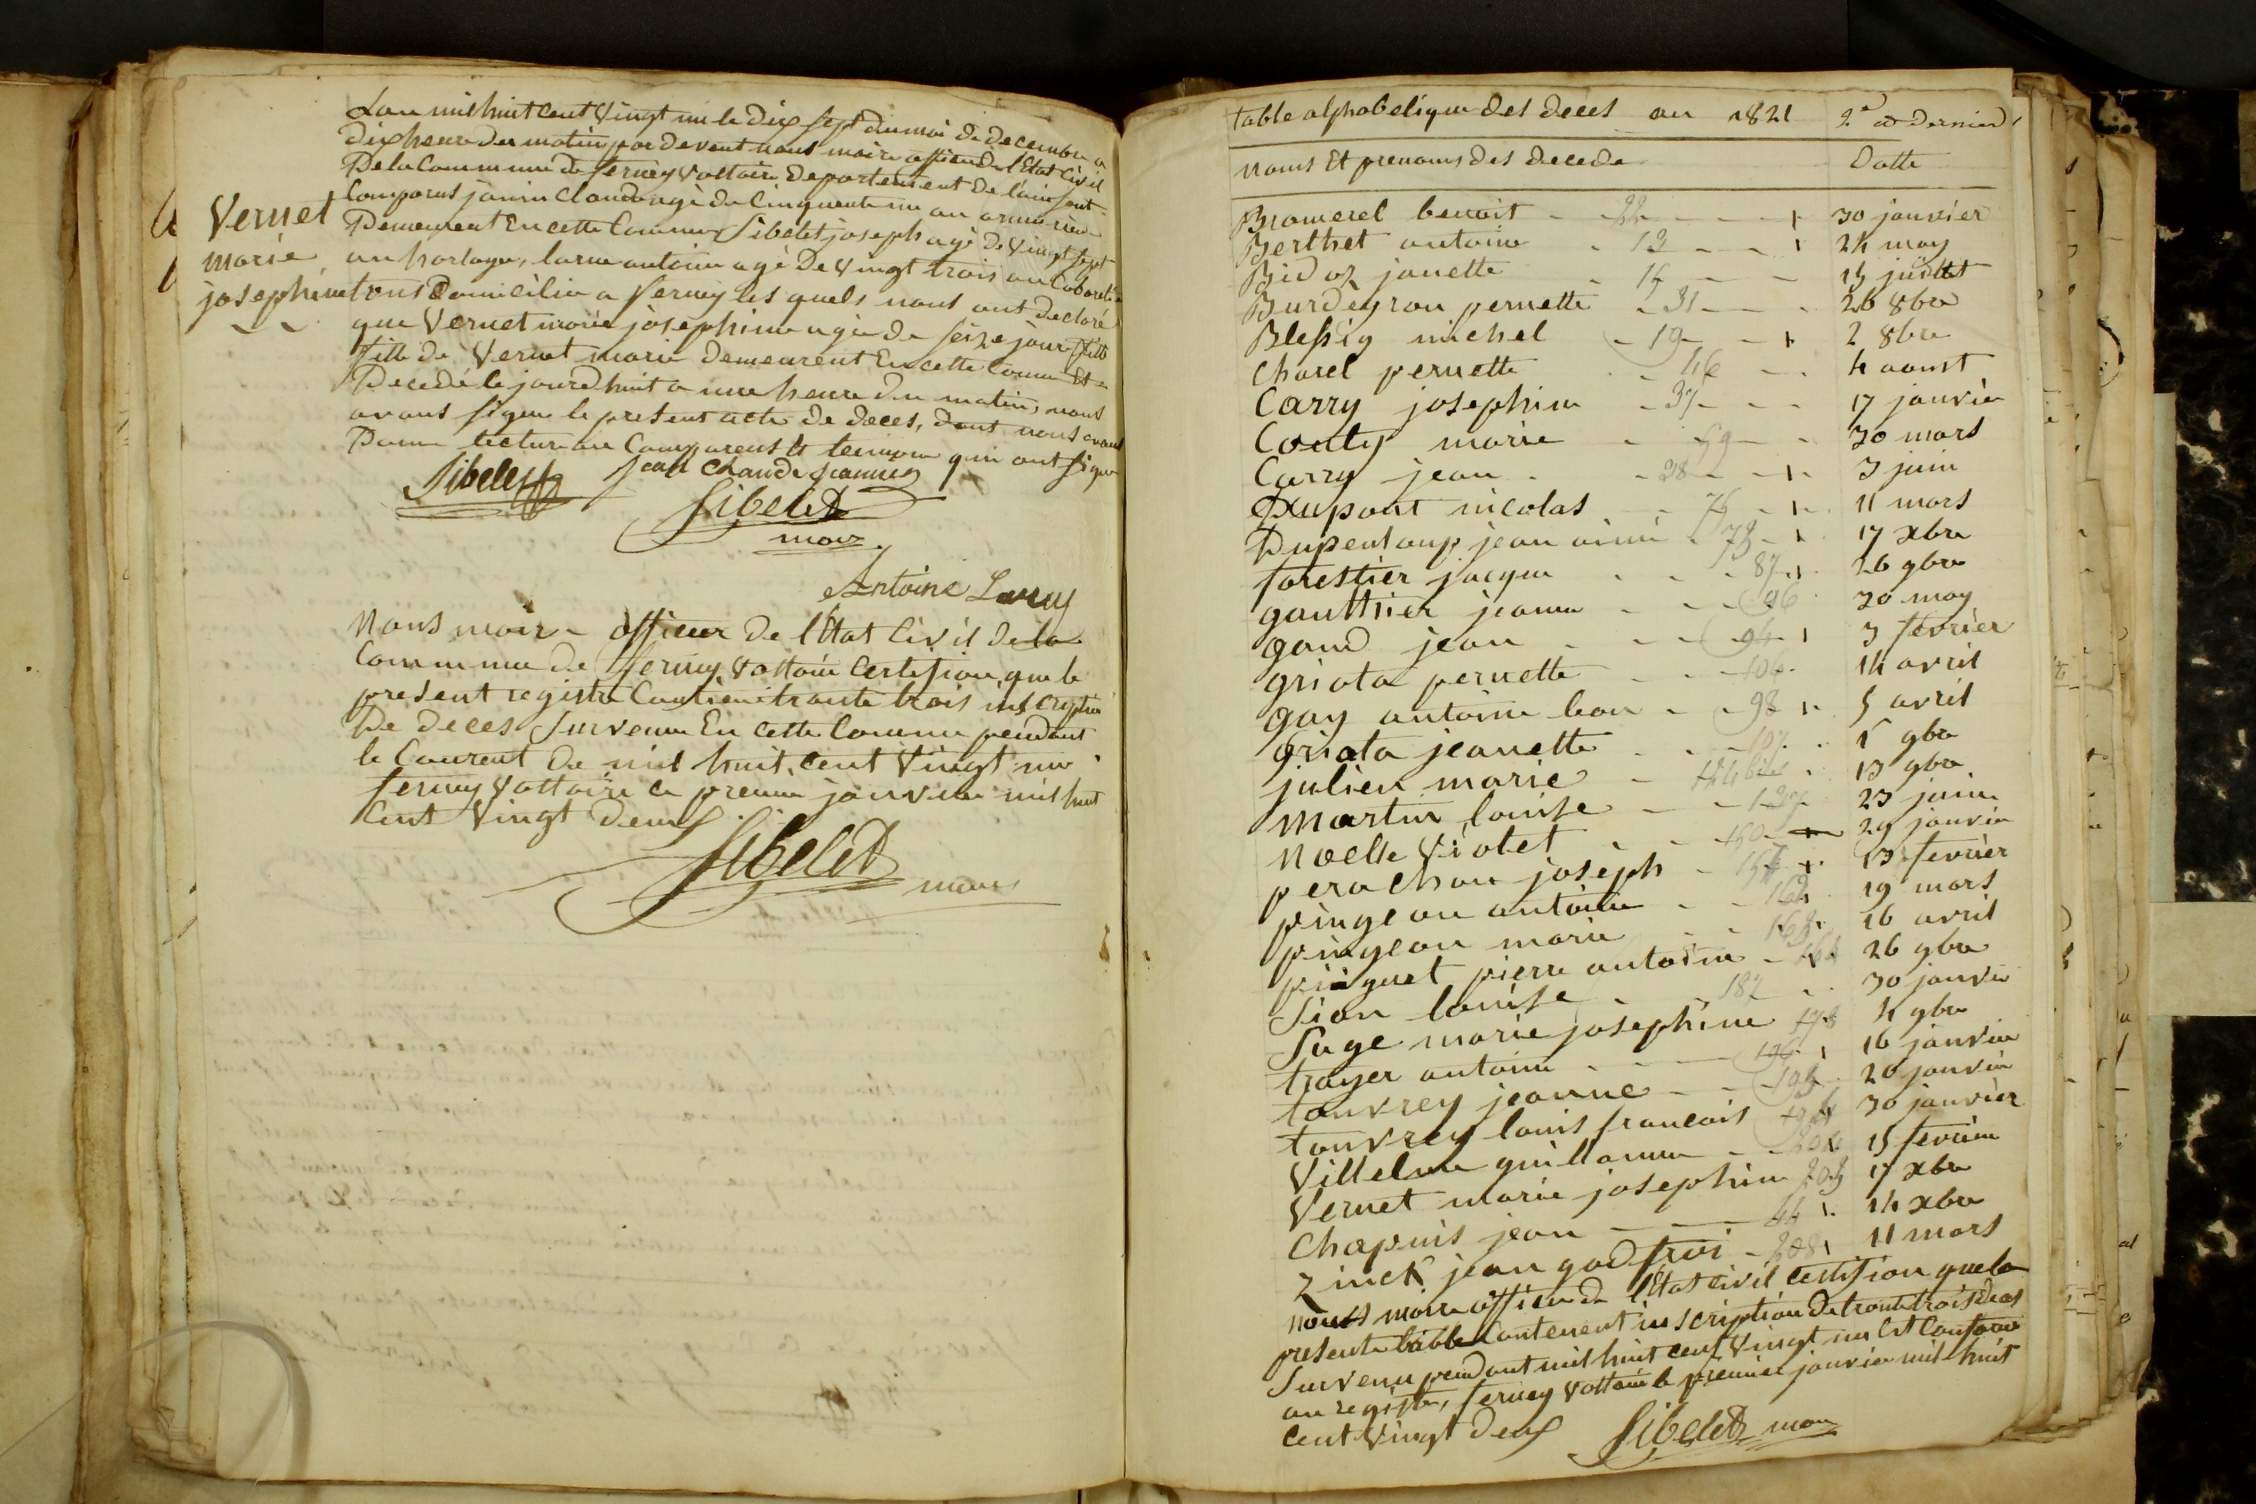 Vernet
marie
josephine
Lan mil huit cent vingt un le dix sept du moi de decembre a
dix heure du matin par devant nous maire officier de l'Etat civil
De la Commune de ferney voltaire departement de lain sont
Comparus janin Claude agé de Cinquente un an
Demeurent En cette Commune Sibelet joseph agé De vingt sept
an horloger, larue antoine agé De vingt trois an
tous Domicilie a ferney les quels nous ont declaré
que Vernet marie josephine agée de seize jour fille
fille de Vernet marie demeurent En cette Comune Est
Decedé le jourdhuit a une heure du matin, nous
avons signé le present acte de deces, dont nous avons
Donné lecture au Comparens et temoins qui ont signé
Sibelet Jean Claude Jeannin
Sibelet
maire
Antoine Larue
Nous maire officier de l'Etat Civil de la
Commune de ferney voltaire Certifion que le
present registre Contien trante trois inscription
De deces survenu En cette Comune pendant
le Courent de mil huit cent vingt un
ferney voltaire le premier janvier mil huit
Cent vingt deux
Sibelet maire
table alphabetique des deces an 1821 2e et dernier
noms Et prenoms des decede Datte
Bramerel benoit - 22 - 30 janvier
Berthet antoine - 12 - 24 may
Bidoz janette - 14 - 15 juillet
Burdeyron pernette - 31 - 26 8bre
Blessig michel - 19 - 2 8bre
Charel pernette - 46 - 4 aoust
Carry josephine - 37 - 17 janvier
Couty marie - 59 - 30 mars
Carry jean - 38 - 3 juin
Dupont nicolas - 76 - 11 mars
Dupenloup jean aimé - 78 - 17 xbre
forestier jacque - 87 - 26 9bre
gauthier jeanne - 96 30 may
gand jean - 94 3 février
griota pernette - 106 - 14 avril
gay antoine leon - 98 5 avril
griota jeanette - 107 1 9bre
julien marie - 13 9bre
martin louise - 137 23 juin
Noelle Violet - 150 29 janvier
perachon joseph - 157 13 fevrier
pingeon antoine - 162 19 mars
pingeon marie - 163 16 avril
pinguet pierre antoine - 164 26 9bre
Sion louise - 187 30 janvier
Suge marie josephine 178 4 9bre
trayer antoine - 196 16 janvier
tonvrey jeanne - 195 20 janvier
tonvrey louis francois 194 30 janvier
Villelme guillaume - 15 fevrier
Vernet marie josephine 203 17 xbre
Chapuis jean - 44 14 xbre
Zinck jean godfroi - 208 11 mars
nous maire officier de l'Etat civil certifion que la
presente table Contenent inscription de trante trois deces
survenu pendant mil huit cent vingt un Est Conforme
au registre, ferney voltaire le premier janvier mil huit
Cent vingt deux Sibelet maire